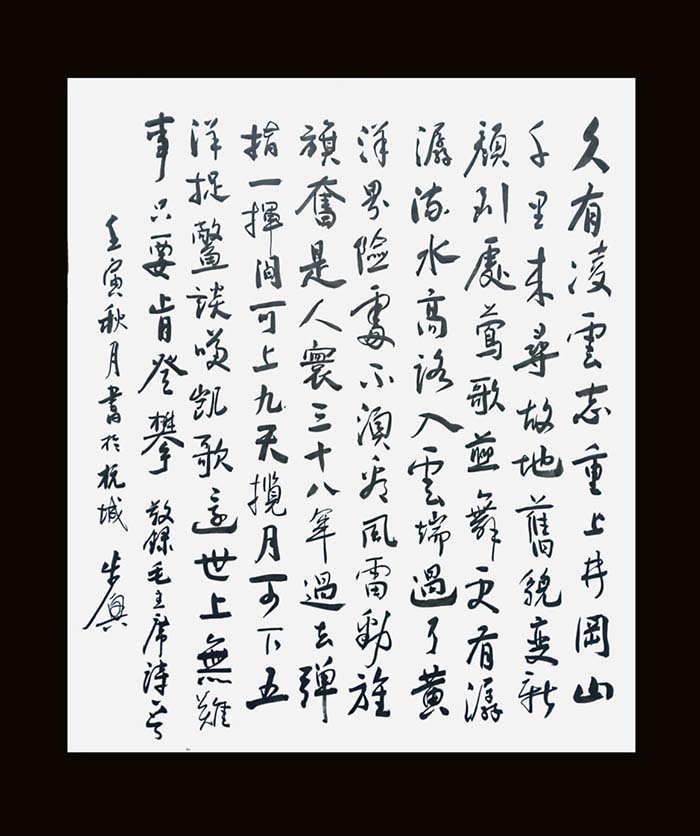 久有凌雲志重上井岡山
千里来尋故地舊貌变新
顏到處鶯歌燕舞更有潺
潺流水高路入雲端過了黄
洋界險處不須看風雷動旌
旗奮是人寰三十八年過去弹
指一揮間可上九天攬月可下五
洋捉鳖談笑凱歌還世上無難
事只要肯登攀 敬録毛主席詩
壬寅秋月書於杭城